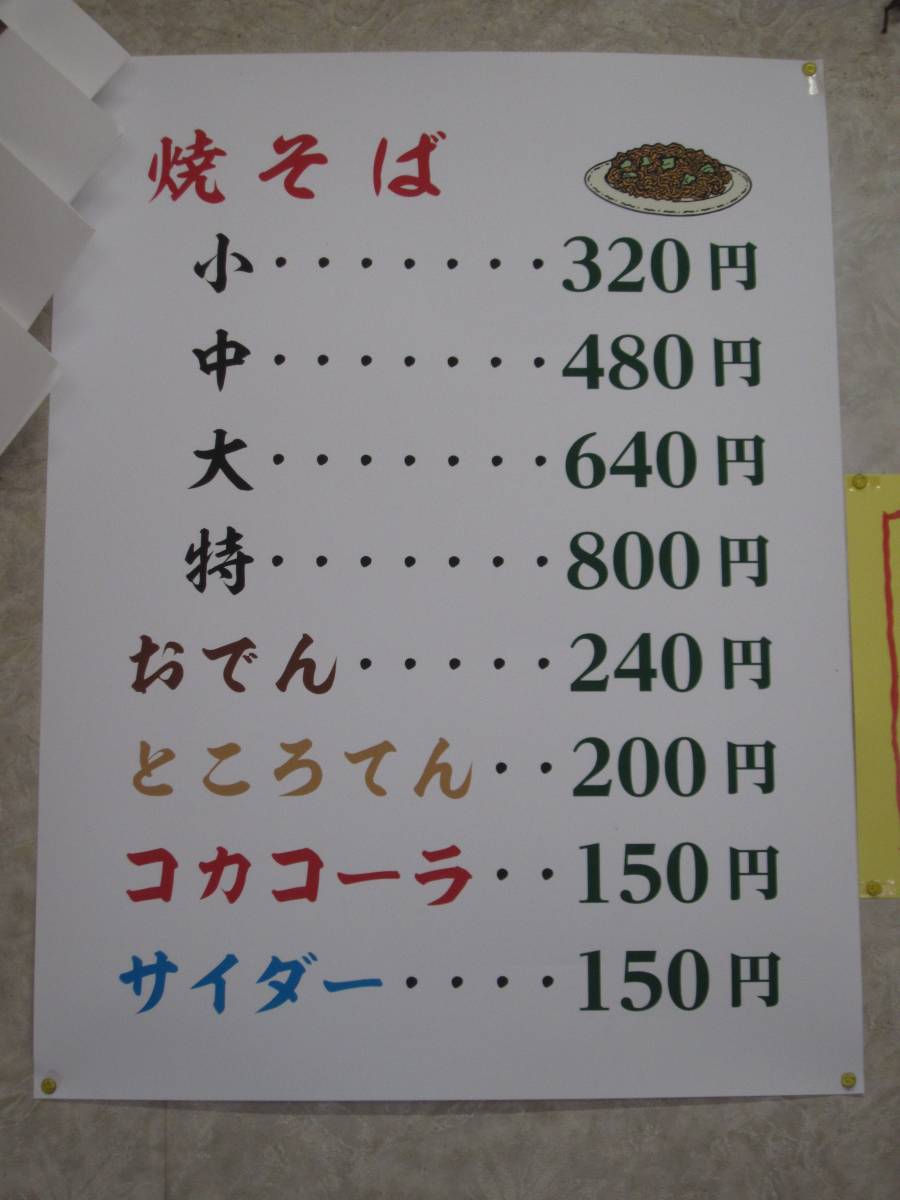 焼そば
小・・・・・・・320円
中・・・・・・・480円
大・・・・・・・640円
特・・・・・・・800円
おでん・・・・・240円
ところてん・・200円
コカコーラ・・150円
サイダー・・・・150円